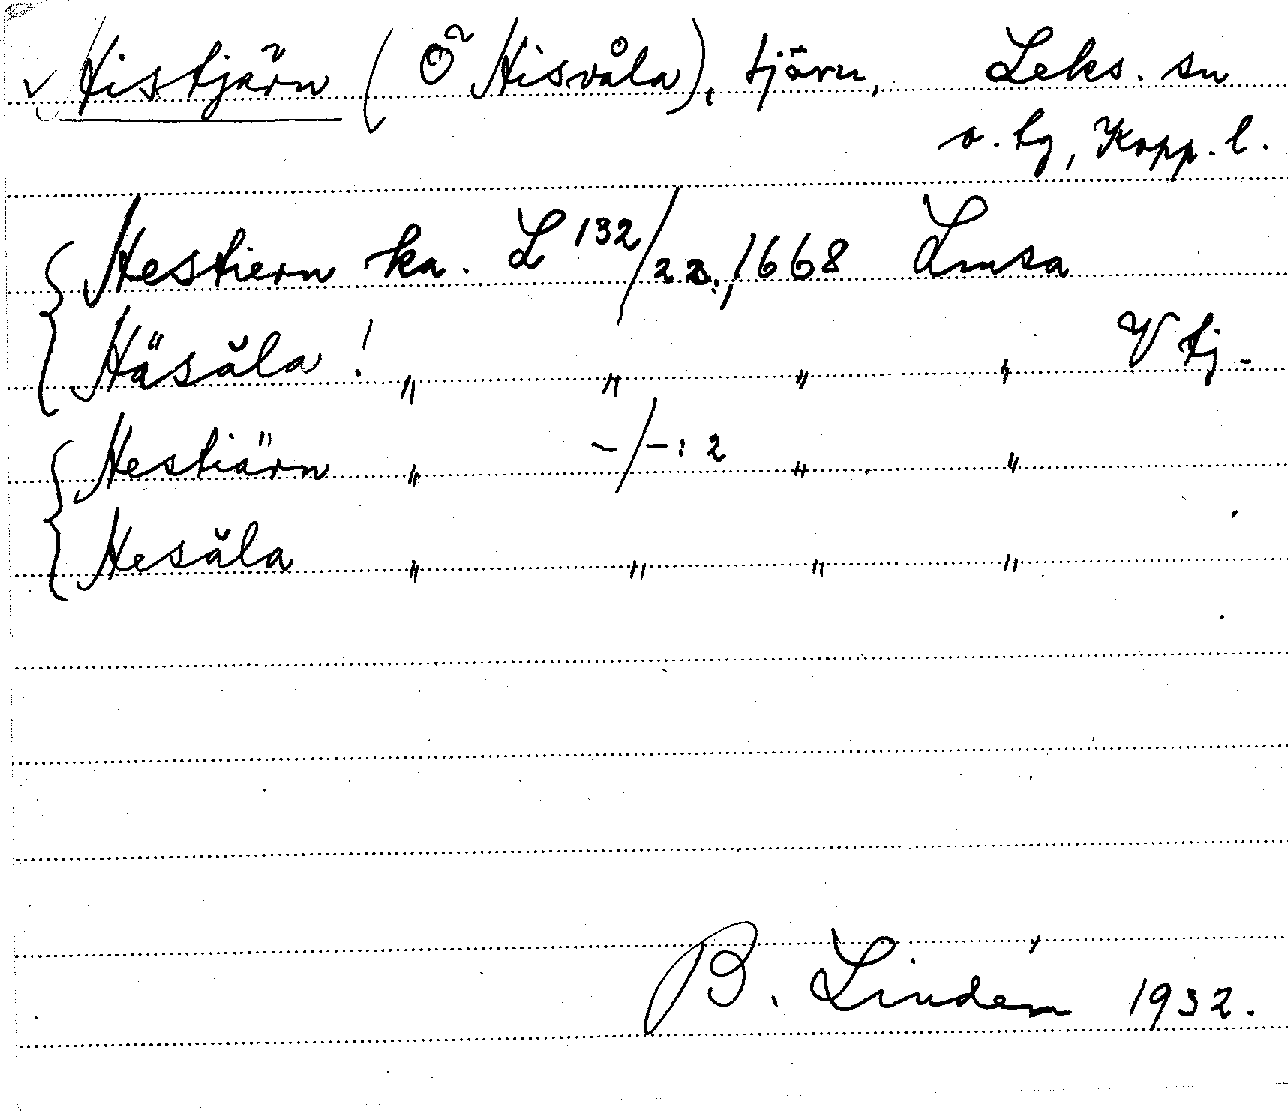 ✓ Histjärn (Ö Hisvåla), tjärn, Leks. sn
o. tg, Kopp. l.
Hestiern ka. L 132/22, 1668 Lmsa
Häsåla ! " " " " V tj.
Hestiärn " -/-:2 " "
Hesåla " " " "
B. Lindén 1932.